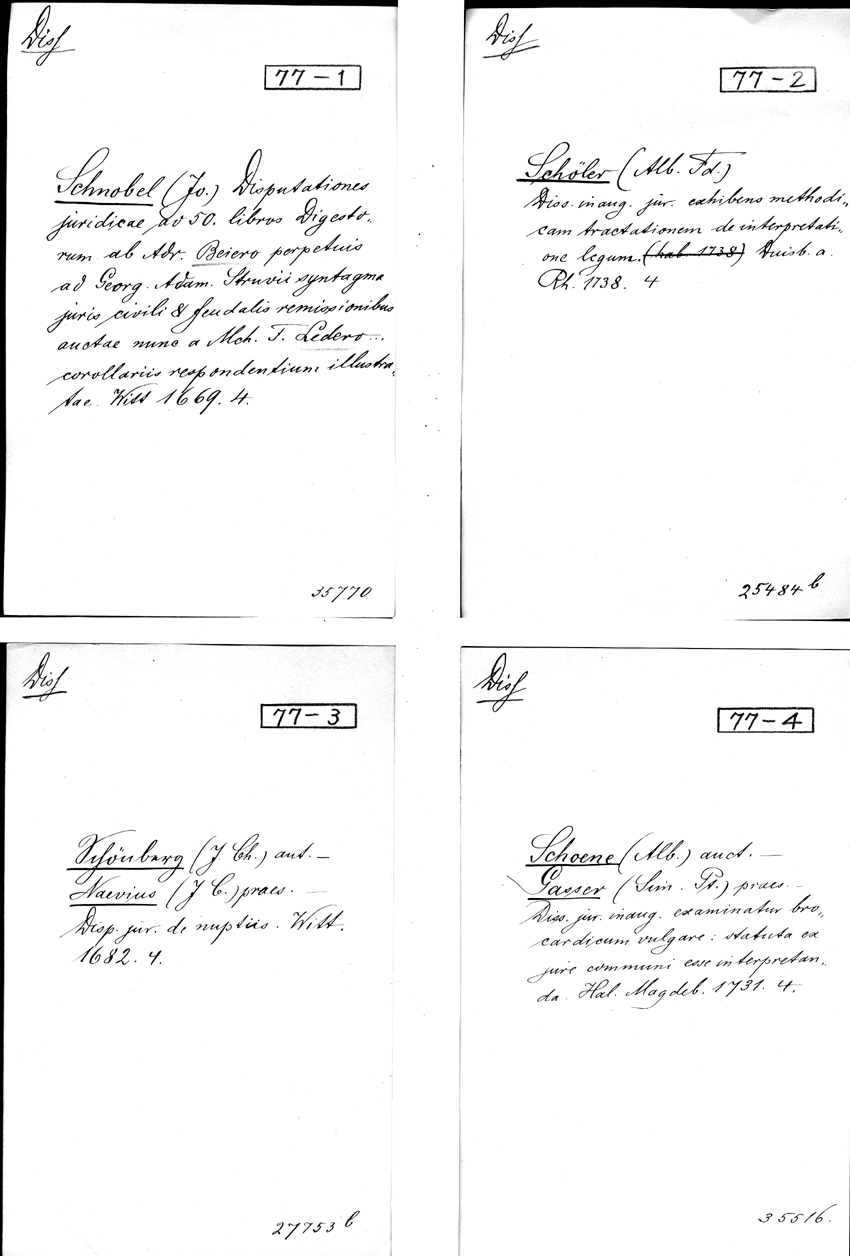 Diss
77-1
Schnobel (Jo.) Disputationes
juridicae ad 50. libros Digesto-
rum ab Adr. Beiero perpetuis
ad Georg. Adam. Struvii syntagma
juris civili & feudalis remissionibus
auctae nunc a Mch. T. Ledero...
corollariis respondentium illustra-
tae. Witt 1669. 4.
35770
Diss
77-2
Schöler (Alb. Fd.)
Diss. inaug. jur. exhibens methodi-
cam tractationem de interpretati-
one legum. (hab 1738) Duisb. a.
Rh. 1738. 4
25484 b
Diss
77-3
Schönberg (J Ch.) aut. —
Naevius (J. C.) praes. —
Disp. jur. de nuptiis. Witt.
1682. 4.
27753 b
Diss
77-4
Schoene (Alb.) auct. —
Gasser (Sim. Pt.) praes. -
Diss. jur. inaug. examinatur bro-
cardicum vulgare: statuta ex
jure communi esse interpretan-
da. Hal. Magdeb. 1731. 4.
35516.